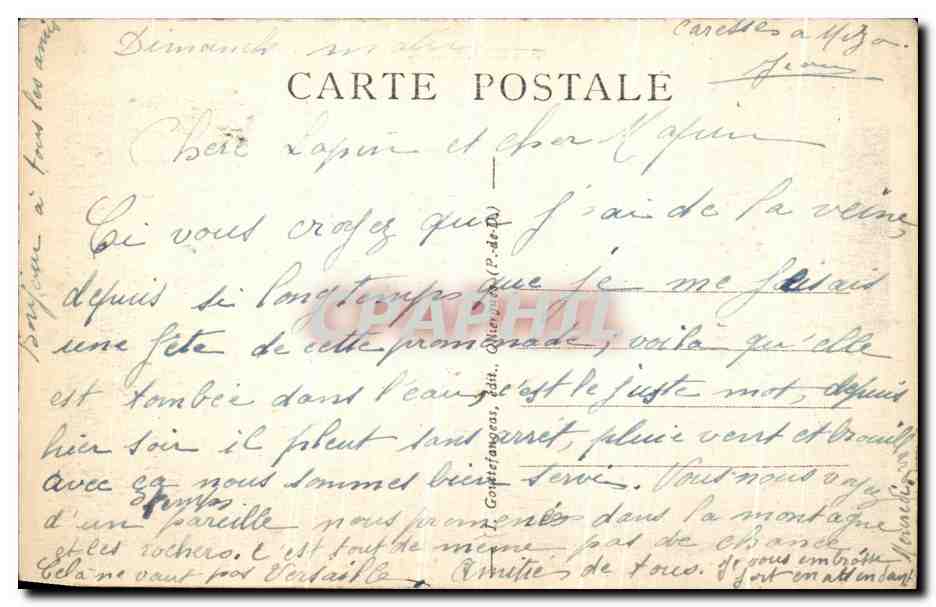 Dimanche matin
Caresses a Mizo.
Jean
CARTE POSTALE
Chere Lapin et cher Mapin
Ci vous croyez que j'ai de la veine,
depuis si longtemps que je me faisais
une fête de cette promenade, voilà qu'elle
est tombée dans l'eau, c'est le juste mot, depuis
hier soir il pleut sans arrêt, pluie vent et brouill
avec ça nous sommes bien servi. Vous nous voyez
d'un pareille temps nous promenés dans la montagne
et les rochers. C'est tout de même pas de chance
Celà ne vaut pas Versaille. Amitiés de tous. Je vous embrasse
fort en attendant
Bonjour à tous les amis
J. Gouttefangeas, édit., Olliergues (P.-de-D.)
CPAPHIL